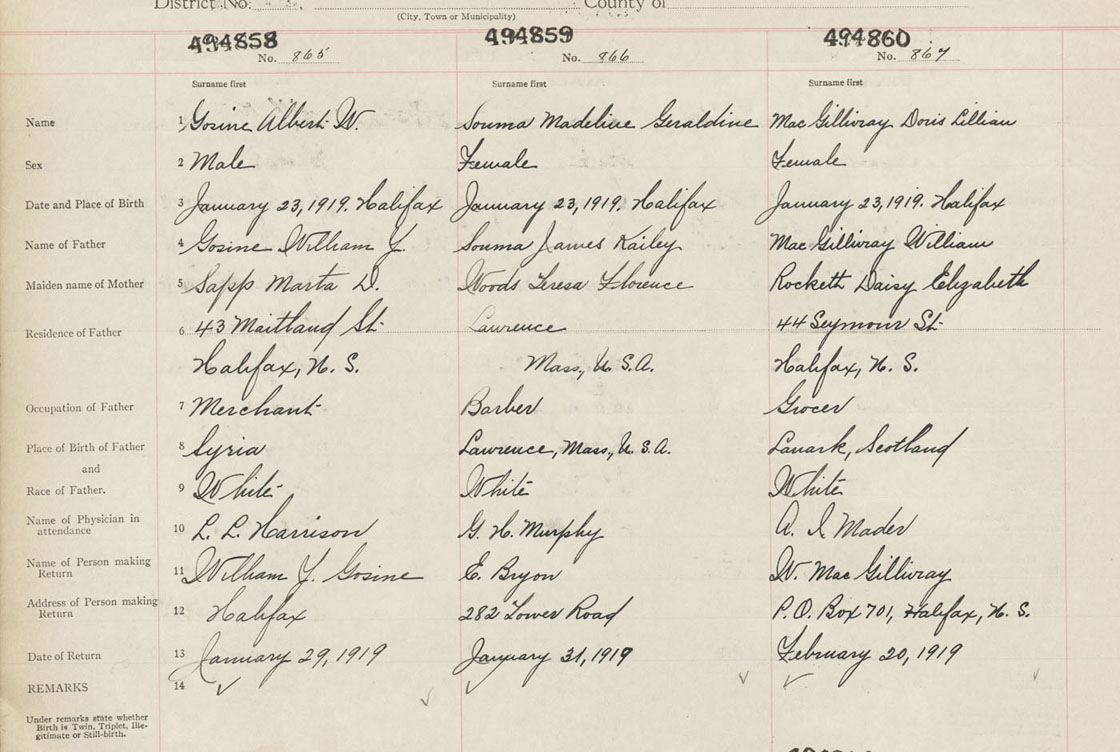 District No. County of
(City, Town or Municipality)
494858 494859 494860
No. 865 No. 866 No. 867
Surname first Surname first Surname first
Name 1 Gosine Albert W. Souma Madeline Geraldine MacGillivray Doris Lillian
Sex 2 Male Female Female
Date and Place of Birth 3 January 23, 1919. Halifax January 23, 1919. Halifax January 23, 1919. Halifax
Name of Father 4 Gosine William Y. Souma James Kailey MacGillivray William
Maiden name of Mother 5 Sapp Marta D. Woods Teresa Florence Rockett Daisy Elizabeth
Residence of Father 6 43 Maitland St. Lawrence 44 Seymour St.
Halifax, N. S. Mass., U. S. A. Halifax, N. S.
Occupation of Father 7 Merchant Barber Grocer
Place of Birth of Father 8 Syria Lawrence, Mass., U. S. A. Lanark, Scotland
and
Race of Father. 9 White White White
Name of Physician in attendance 10 L. L. Harrison G. H. Murphy A. I. Mader
Name of Person making Return 11 William Y. Gosine E. Bryon W. MacGillivray
Address of Person making Return 12 Halifax 282 Tower Road P. O. Box 701, Halifax, N. S.
Date of Return 13 January 29, 1919 January 31, 1919 February 20, 1919
REMARKS 14
Under remarks state whether
Birth is Twin, Triplet, Ille-
gitimate or Still-birth.